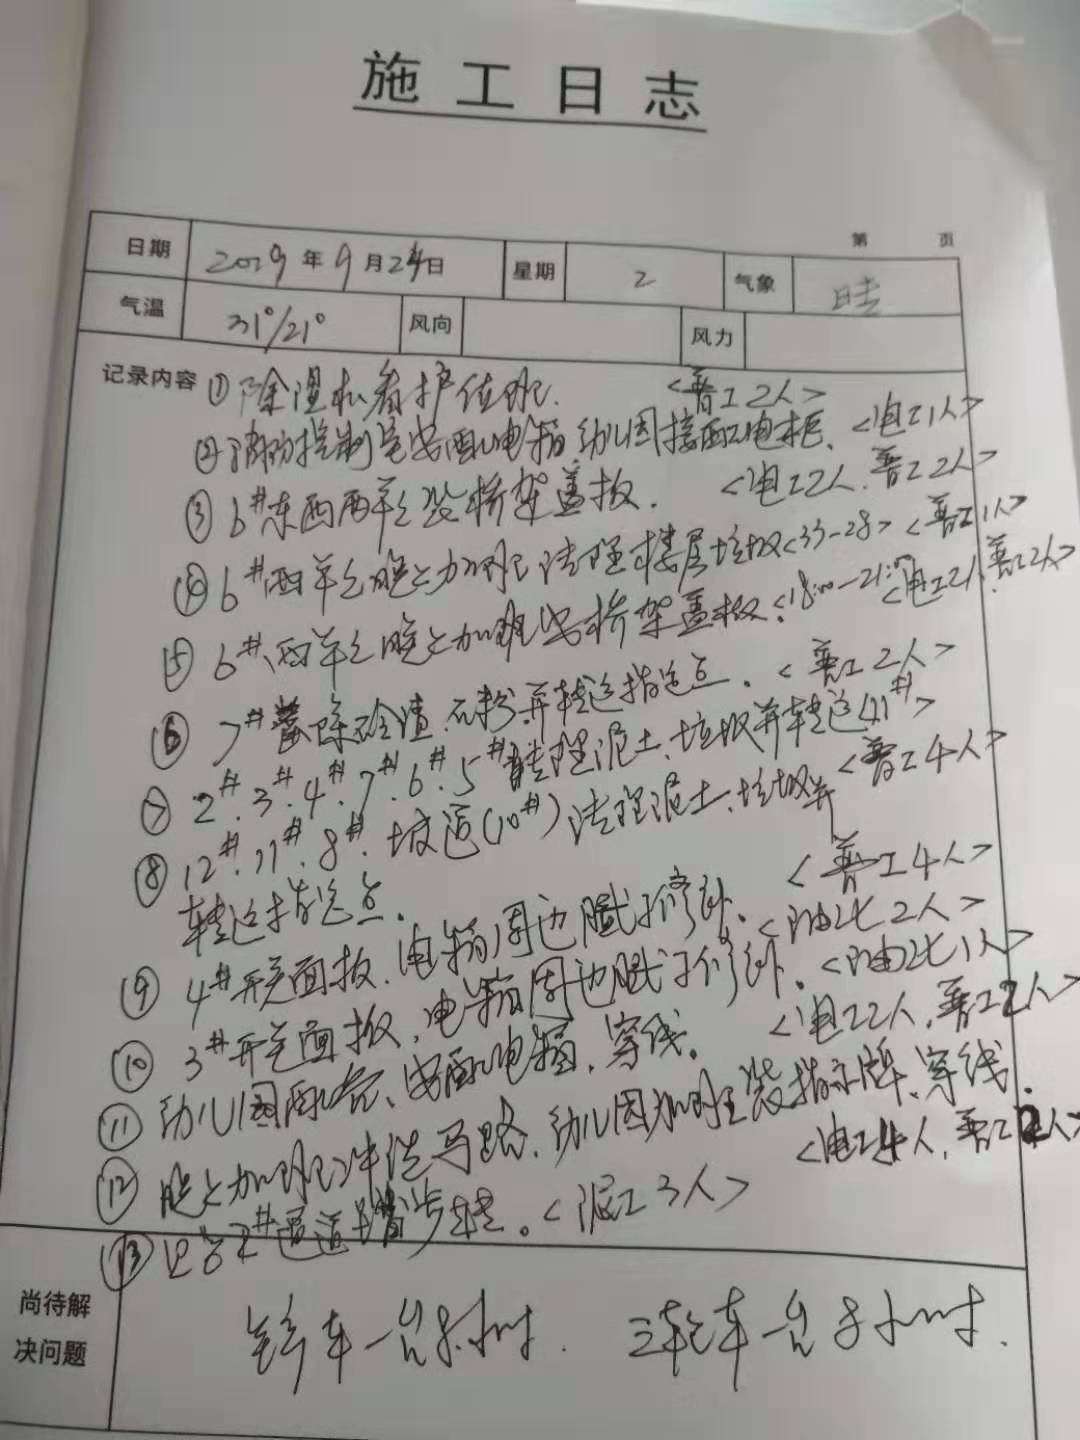 施工日志
第 页
日期 2019年9月24日 星期 2 气象 晴
气温 31°/21° 风向 风力
记录内容 ① 除渣机看护值班. <普工2人>
② 消防控制室安配电箱.幼儿园接配电柜. <电工1人>
③ 6#东西两单元装桥架盖板. <电工2人.普工2人>
④ 6#西单元晚上加班清理楼层垃圾<33-28> <普工1人>
⑤ 6#西单元晚上加班安桥架盖板.<18:00-21:00> <电工2人.普工2人>
⑥ 7# 砼渣.石粉并转运指定点. <普工2人>
⑦ 2#.3#.4#.7#.6#.5# 清理泥土.垃圾并转运 <11#>
⑧ 12#.11#.8#.坡道(10#)清理泥土.垃圾并 <普工4人>
转运指定点. <普工4人>
⑨ 4#开关面板.电箱周边腻子修补. <油工2人>
⑩ 3#开关面板,电箱周边腻子修补. <油工1人>
⑪ 幼儿园配管、安配电箱,穿线. <电工2人,普工2人>
⑫ 晚上加班冲洗马路,幼儿园加班装指示牌、穿线.
<电工4人,普工2人>
⑬ 2#通道 步砖。<泥工3人>
尚待解
决问题
铲车一台8小时. 三轮车一台8小时.